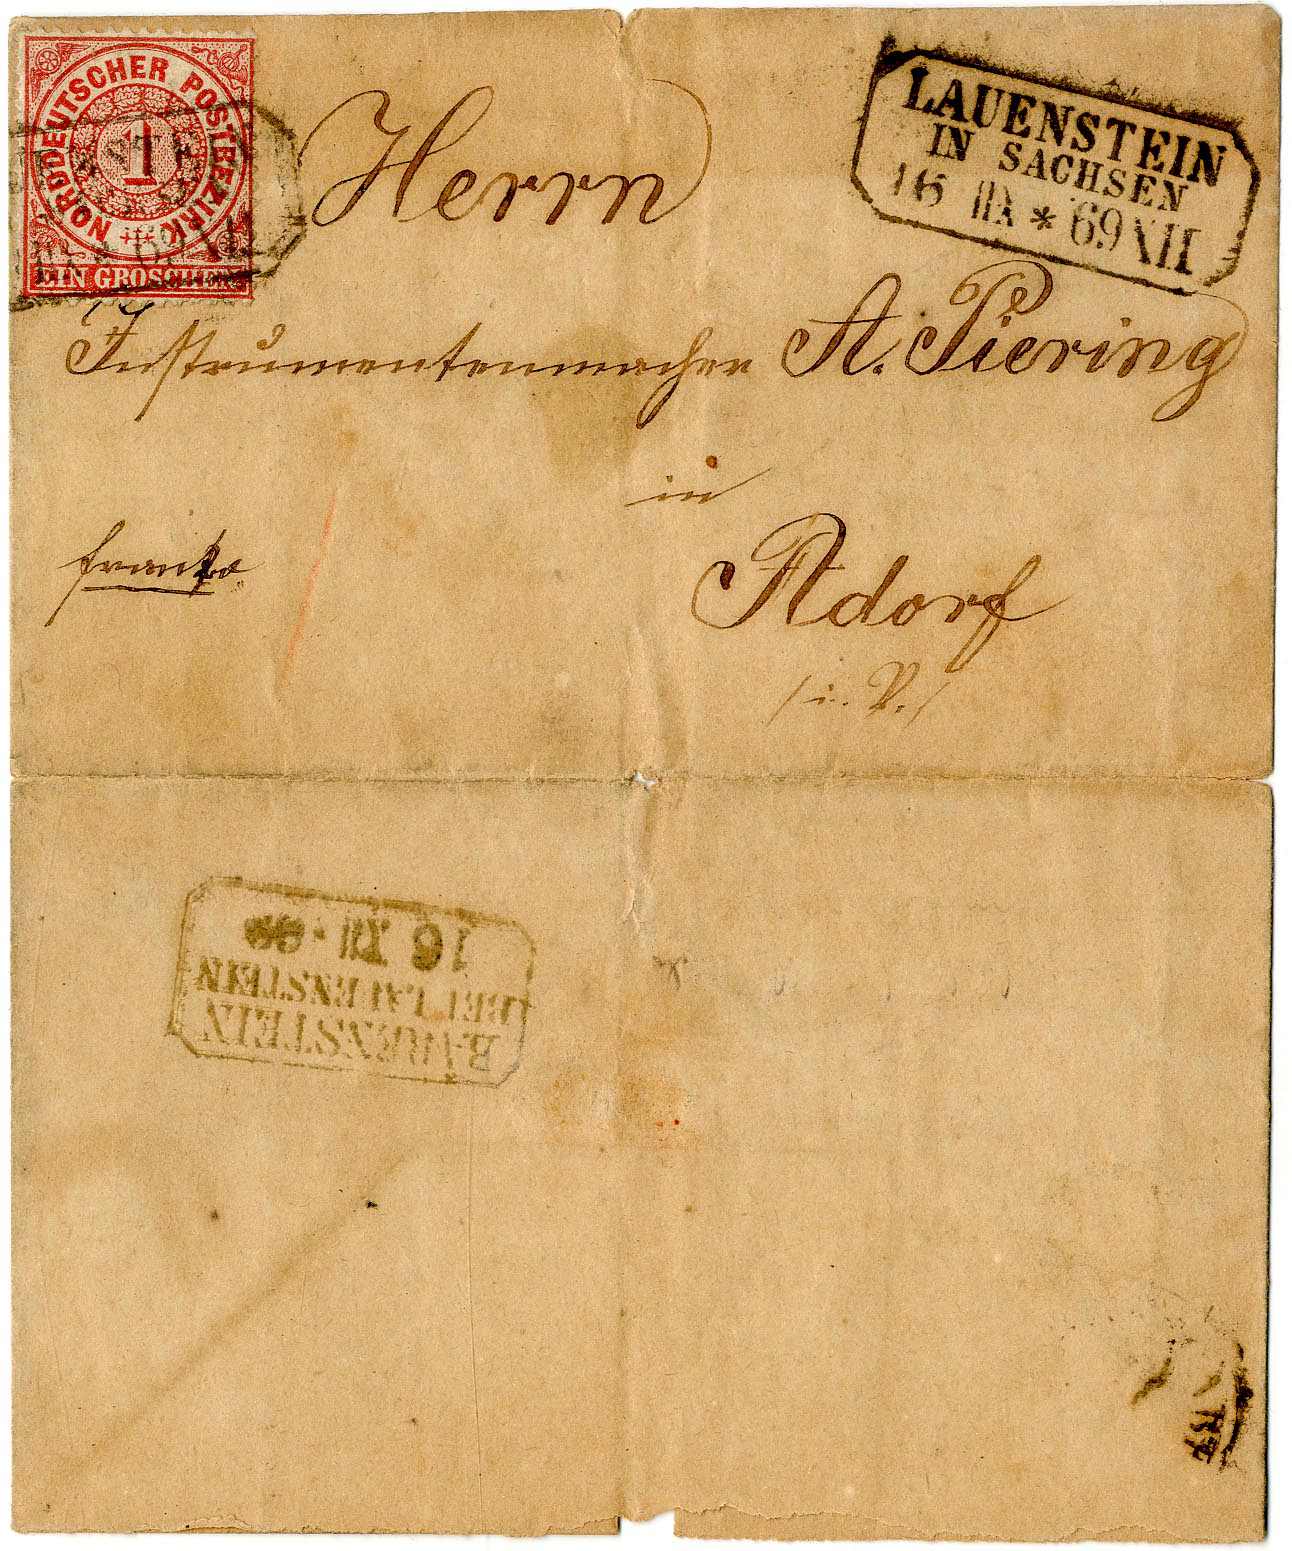 NORDDEUTSCHER POSTBEZIRK
1
EIN GROSCHEN
LAUENSTEIN
IN SACHSEN
16 XII * 69 XII
Herrn
Instrumentenmacher A. Piering
in
Adorf
/i. V./
franko
BÄRENSTEIN
BEI LAUENSTEIN
16 XII